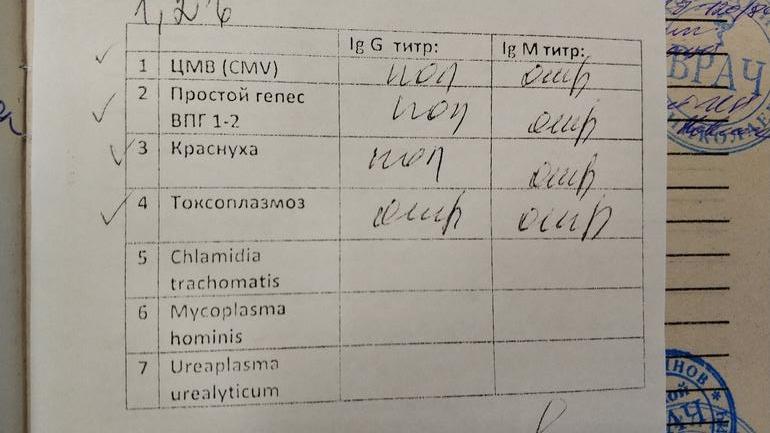 1,2 %
Ig G титр: Ig M титр:
1 ЦМВ (CMV) пол отр
2 Простой гепес пол отр
ВПГ 1-2
3 Краснуха пол отр
4 Токсоплазмоз отр отр
5 Chlamidia
trachomatis
6 Mycoplasma
hominis
7 Ureaplasma
urealyticum
ВРАЧ